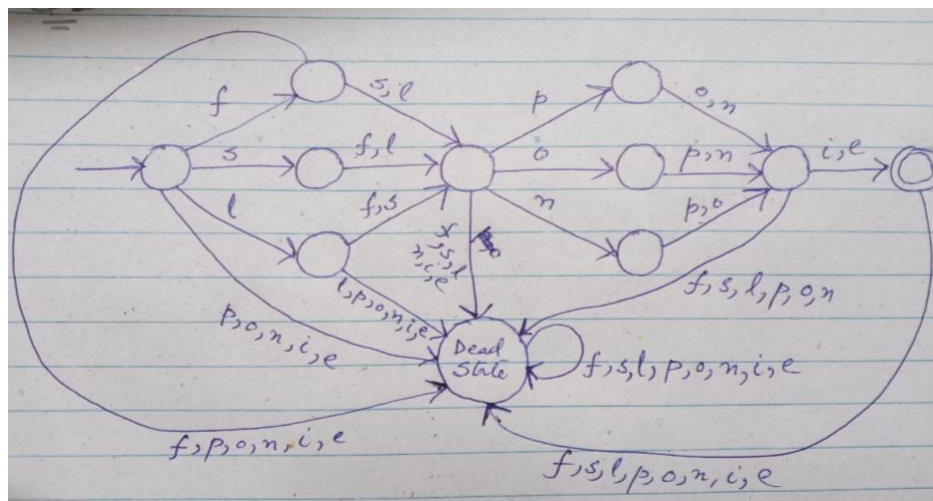 f
s,l
p
o,n
s
f,l
o
p,n
i,e
l
f,s
n
p,o
s,l
n,i,e
l,p,o,n,i,e
p,o,n,i,e
f,s,l,p,o,n
Dead
State
f,s,l,p,o,n,i,e
f,p,o,n,i,e
f,s,l,p,o,n,i,e